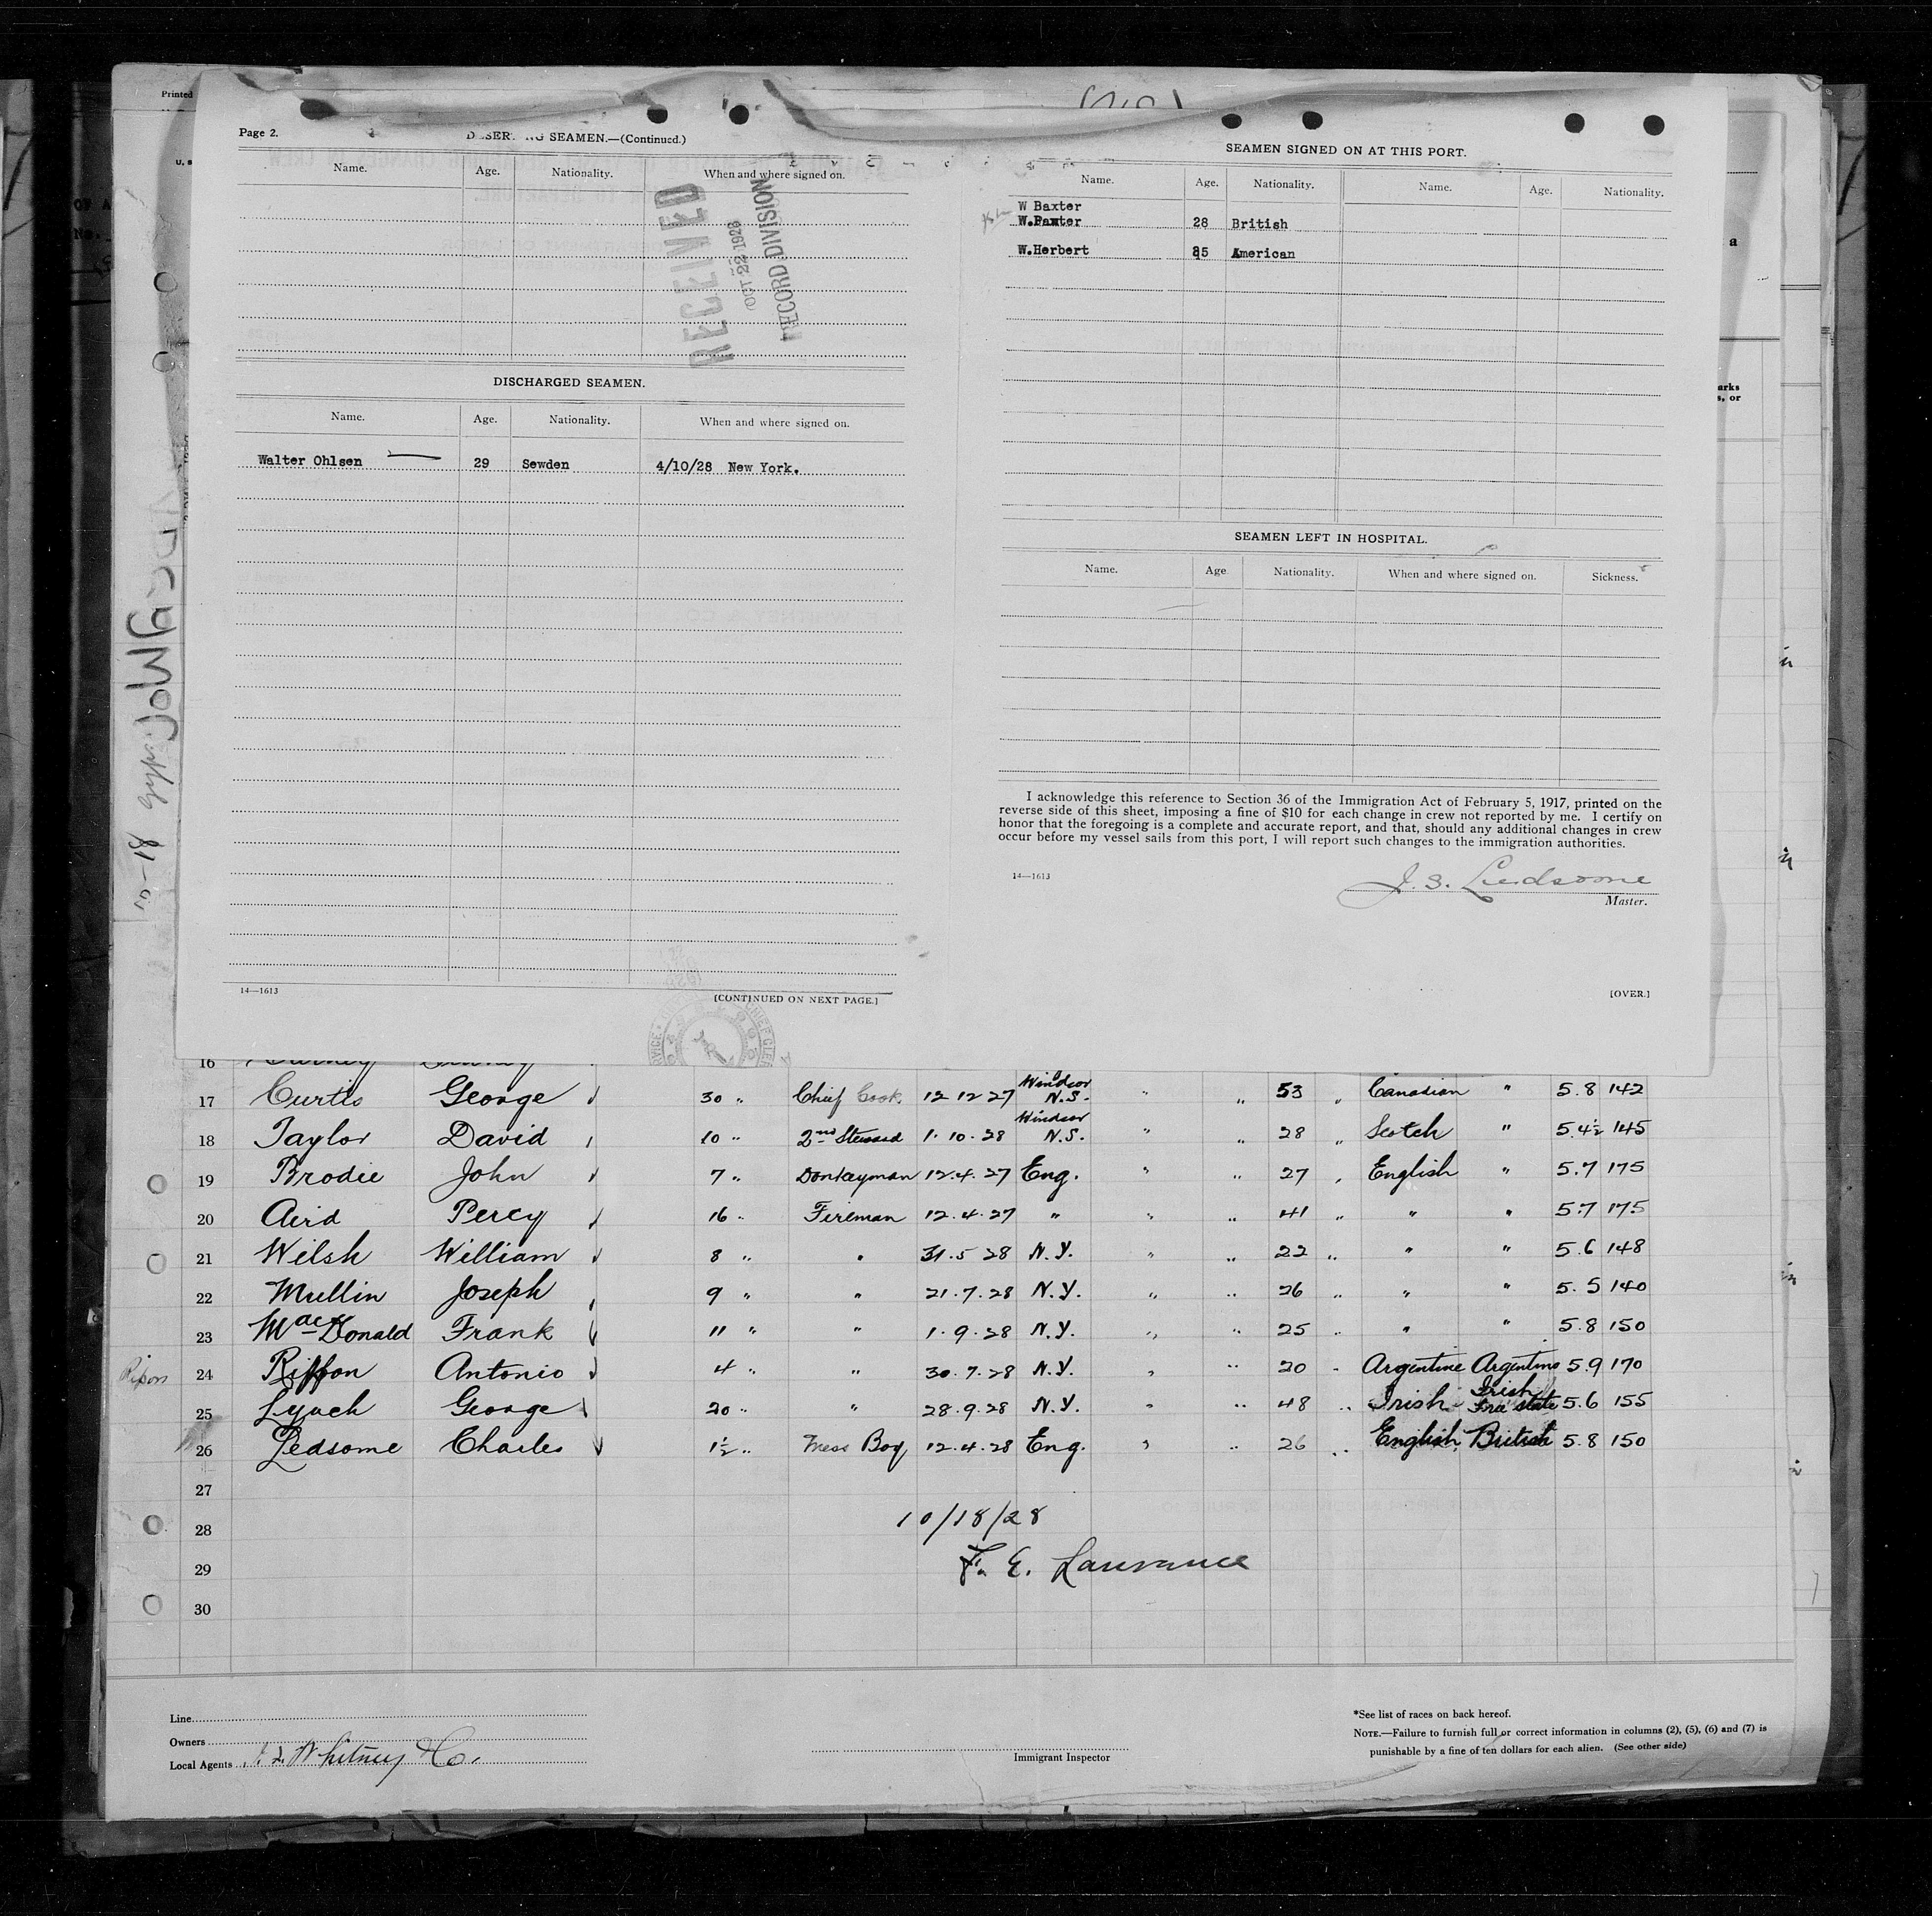 Printed
Page 2.
SEAMEN.—(Continued.)
Name. Age. Nationality. When and where signed on.
RECEIVED
OCT 22 1928
RECORD DIVISION
DISCHARGED SEAMEN.
Name. Age. Nationality. When and where signed on.
Walter Ohlsen 29 Sewden 4/10/28 New York.
14—1613
[CONTINUED ON NEXT PAGE.]
SEAMEN SIGNED ON AT THIS PORT.
Name. Age. Nationality. Name. Age. Nationality.
W Baxter
28 British
W.Herbert American
SEAMEN LEFT IN HOSPITAL.
Name. Age Nationality. When and where signed on. Sickness.
I acknowledge this reference to Section 36 of the Immigration Act of February 5, 1917, printed on the
reverse side of this sheet, imposing a fine of $10 for each change in crew not reported by me. I certify on
honor that the foregoing is a complete and accurate report, and that, should any additional changes in crew
occur before my vessel sails from this port, I will report such changes to the immigration authorities.
14—1613
Master.
[OVER.]
16
17 Curtis George 30 " Chief Cook 12 12 27 Windsor N.S. " " 53 " Canadian " 5.8 142
18 Taylor David 10 " 2nd Steward 1.10.28 Windsor N.S. " " 28 " Scotch " 5.4½ 145
19 Brodie John 7 " Donkeyman 12.4.27 Eng. " " 27 " English " 5.7 175
20 Aird Percy 16 " Fireman 12.4.27 " " " 41 " " " 5.7 175
21 Welsh William 8 " " 31.5.28 N.Y. " " 22 " " " 5.6 148
22 Mullin Joseph 9 " " 21.7.28 N.Y. " " 26 " " " 5.5 140
23 MacDonald Frank 11 " " 1.9.28 N.Y. " " 25 " " " 5.8 150
24 Antonio 4 " " 30.7.28 N.Y. " " 20 " Argentine Argentine 5.9 170
25 Lynch George 20 " " 28.9.28 N.Y. " " 48 " Irish Irish Free State 5.6 155
26 Ledsome Charles 1½ " Mess Boy 12.4.28 Eng. " " 26 " English British 5.8 150
27
28 10/18/28
29 F. E. Lawrance
30
Line
Owners
Local Agents J. L. Whitney & Co.
Immigrant Inspector
*See list of races on back hereof.
NOTE.—Failure to furnish full or correct information in columns (2), (5), (6) and (7) is
punishable by a fine of ten dollars for each alien. (See other side)